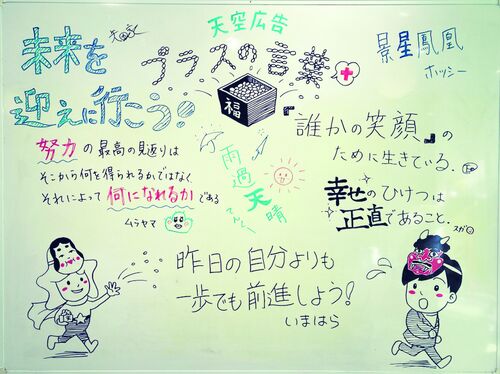 天空広告
プラスの言葉
未来を
迎えに行こう!
景星鳳凰
ホッシー
福
努力の最高の見返りは
そこから何を得られるかではなく
それによって何になれるかである
ムラヤマ
雨過天晴
『誰かの笑顔』の
ために生きている。
幸せのひけつは
正直であること。
スガ
昨日の自分よりも
一歩でも前進しよう!
いまはら